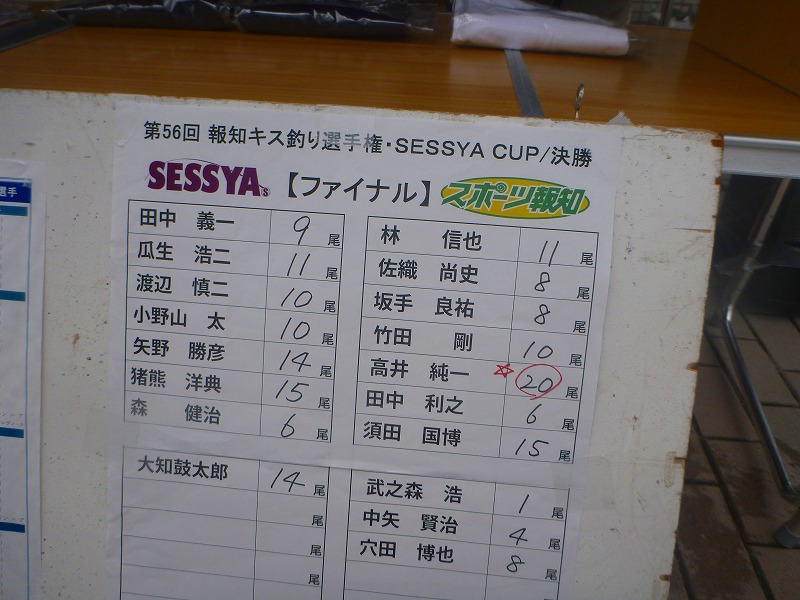 第56回 報知キス釣り選手権・SESSYA CUP/決勝
SESSYA's 【ファイナル】 スポーツ報知
田中 義一 9 尾
瓜生 浩二 11 尾
渡辺 慎二 10 尾
小野山 太 10 尾
矢野 勝彦 14 尾
猪熊 洋典 15 尾
森 健治 6 尾
林 信也 11 尾
佐織 尚史 8 尾
坂手 良祐 8 尾
竹田 剛 10 尾
高井 純一 ☆ 20 尾
田中 利之 6 尾
須田 国博 15 尾
大知鼓太郎 14 尾
尾
尾
尾
武之森 浩 1 尾
中矢 賢治 4 尾
穴田 博也 8 尾
尾
選手